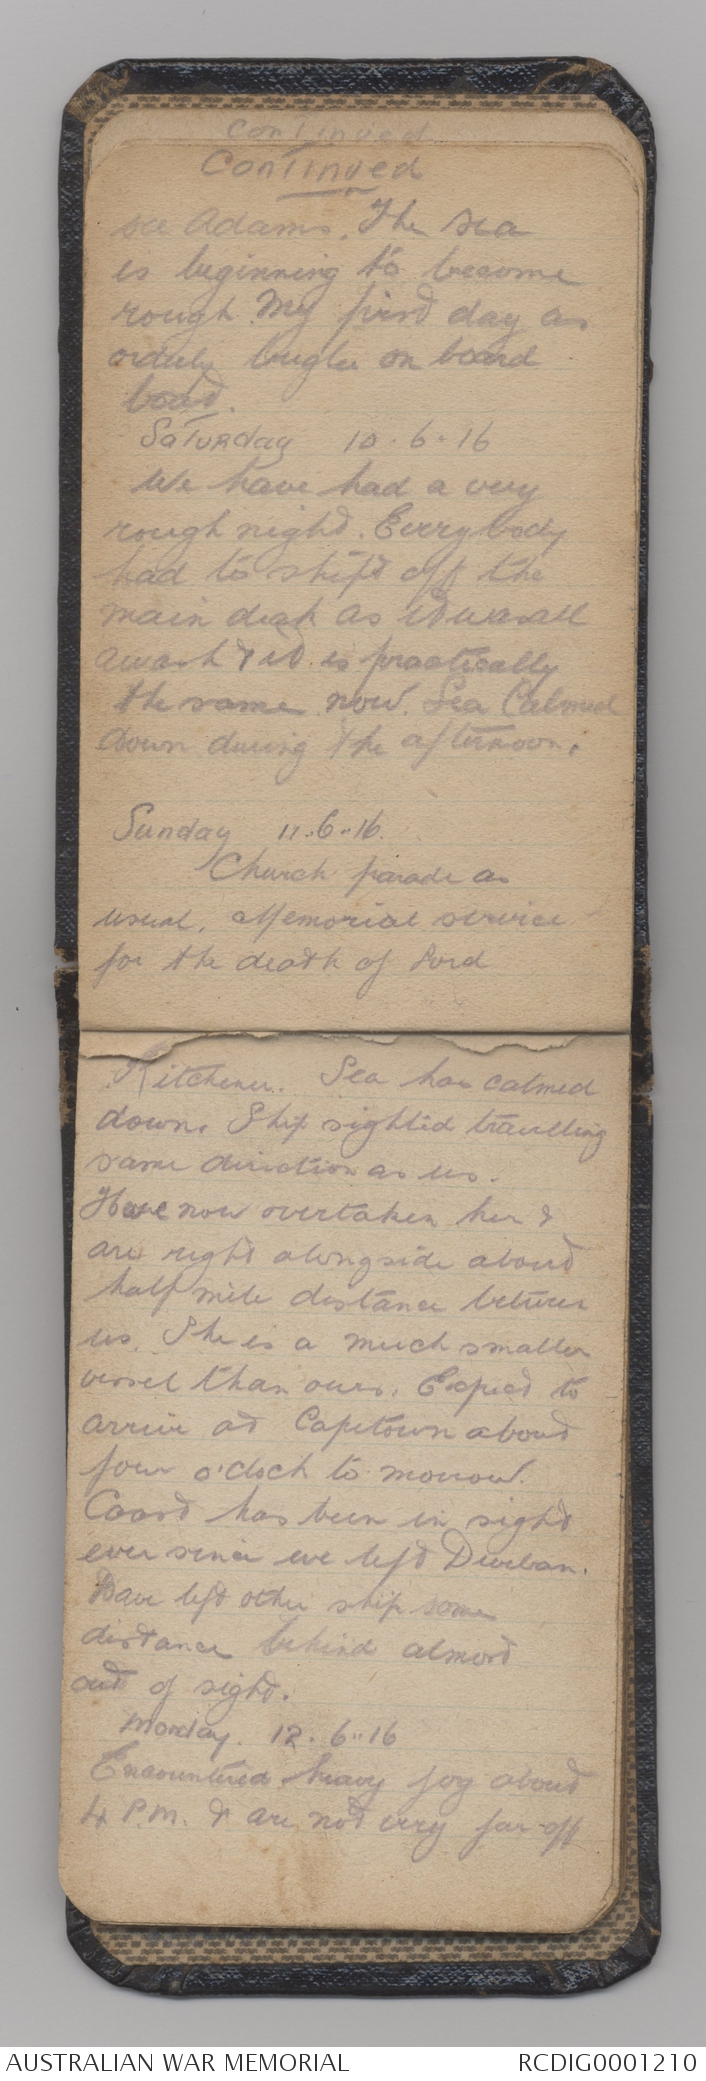 Continued
Continued
see Adams. The sea
is beginning to become
rough. My first day as
orderly bugler on board
boat.
Saturday 10.6.16
We have had a very
rough night. Everybody
had to shift off the
main deck as it was all
awash & it is practically
the same now. Sea Calmed
down during the afternoon.
Sunday 11.6.16.
Church parade as
usual. Memorial service
for the death of Lord
Kitchener. Sea has calmed
down. Ship sighted travelling
same direction as us.
Have now overtaken her &
are right alongside about
half mile distance between
us. She is a much smaller
vessel than ours. Expect to
arrive at Capetown about
four o'clock to morrow.
Coast has been in sight
ever since we left Durban.
Have left other ship some
distance behind almost
out of sight.
Monday. 12.6.16
Encountered heavy fog about
4 P.M. & are not very far off
AUSTRALIAN WAR MEMORIAL
RCDIG0001210